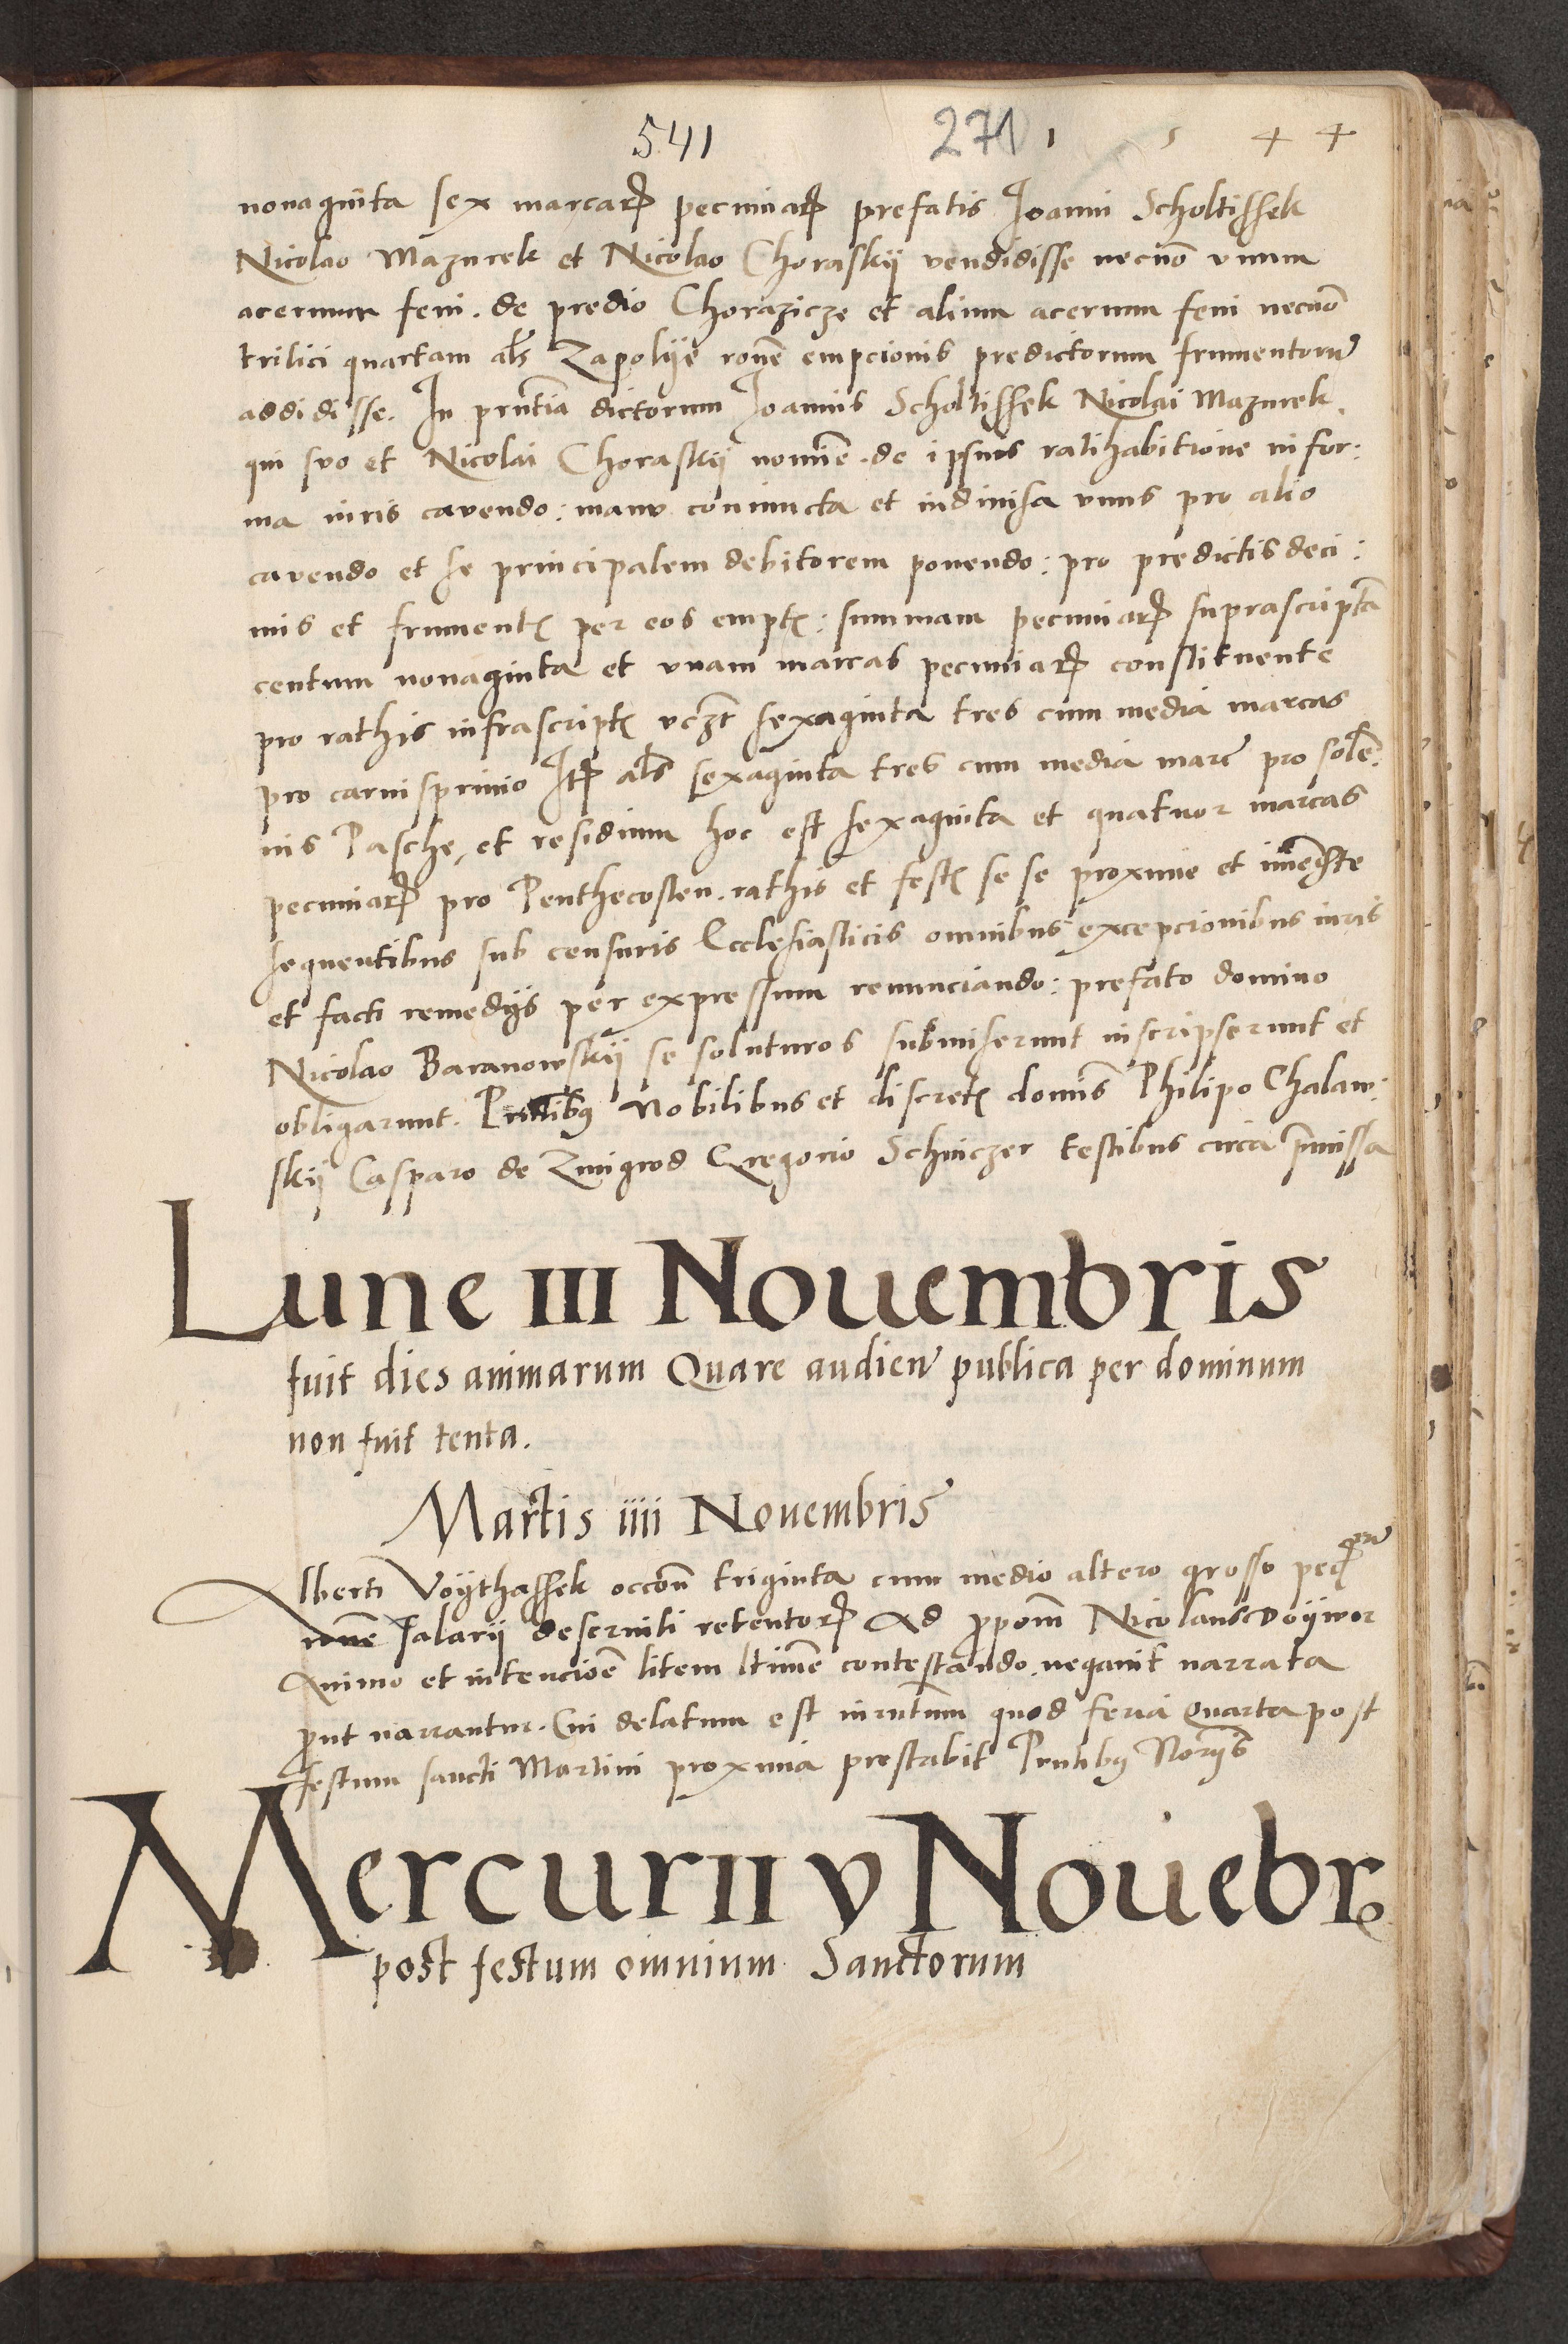 541 271 1 5 4 4
nonaginta sex marcarꝝ pecuniarꝝ prefatis Joanni Scholtissek
Nicolao Mazurek et Nicolao Choraskij vendidisse necnō vnum
aceruum feni. de predio Chorazicze et alium aceruum feni necnō
tritici quartam als̄ Zapolije roñe empcionis predictorum frumentorū
addidisse. In prñtia dictorum Joannis Scholtissek Nicolai Mazurek
qui suo et Nicolai Choraskij nomīe. de ipsius ratihabitione in for:
ma iuris cauendo: manu coniuncta et indiuisa vnus pro alio
cauendo et se principalem debitorem ponendo: pro predictis deci:
mis et frumentꝭ per eos emptꝭ: summam pecuniarꝝ suprascriptā
centum nonaginta et vnam marcas pecuniarꝝ constituentē
pro rathis infrascriptꝭ vcꝫt sexaginta tres cum media marcas
pro carnisprivio Itꝝ als̄ sexaginta tres cum media marc̄ pro solē:
nis Pasche, et residuum hoc est sexaginta et quatuor marcas
pecuniarꝝ pro Penthecosten. rathis et festꝭ se se proxime et immēdte
sequentibus sub censuris Ecclesiasticis omnibus excepcionibus iuris
et facti remedijs per expressum renunciando: prefato domino
Nicolao Baranowskij se soluturos submiserunt inscripserunt et
obligarunt. Prñtibꝰ Nobilibus et discretꝭ domīs Philipo Chalaw:
skij Casparo de Zmigrod Gregorio Schniczer testibus circa p̄missa
Lune III Nouembris
fuit dies animarum Quare audien̄ publica per dominum
non fuit tenta.
Martis iiii Nouembris
Alberti Voythassek occoñ triginta cum medio altero grosso pecꝝ
roñe salarij deseruiti retentorꝝ Ad ꝓpoīm Nicolaus Doijwor
Animo et intencioē litem ltīme contestando. negauit narrata
ꝓut narrantur. Cui delatum est iurm̄tum quod feria Quarta post
festum sancti Martini proxima prestabit Prñtibꝰ Norijs
Mercurii v Nouēbrꝭ
post festum omnium Sanctorum